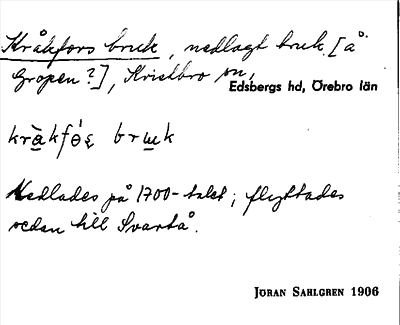 Kråkfors bruk, nedlagt bruk [å
Gropen?], Kvistbro sn,
Edsbergs hd, Örebro län
kràkfɵ́ʂ brɯk
Nedlades på 1700-talet; flyttades
sedan till Svartå.
JÖRAN SAHLGREN 1906